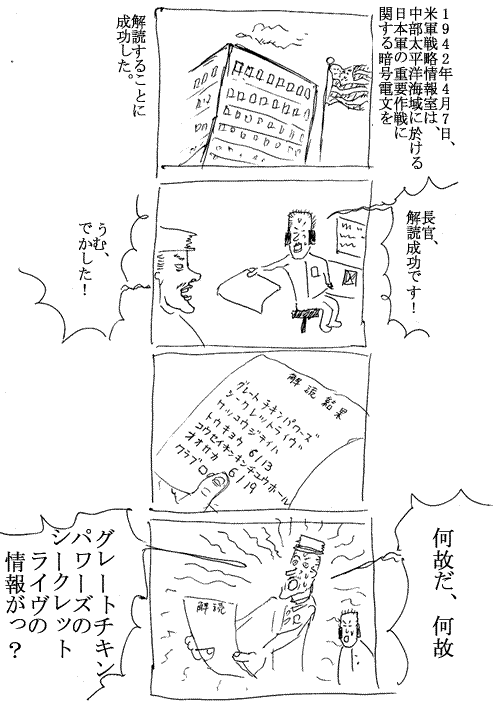 1942年4月7日、
米軍戦略情報室は、
中部太平洋海域に於ける
日本軍の重要作戦に
関する暗号電文を
解読することに
成功した。
長官、
解読成功です！
うむ、
でかした！
解読結果
グレートチキンパワーズ
シークレットライヴ
ケッコウジテイハ
トウキョウ 6/13
コウセイネンキンチュウホール
オオサカ 6/19
クラブ
何故だ、何故
グレートチキン
パワーズの
シークレット
ライヴの
情報がっ？
解読